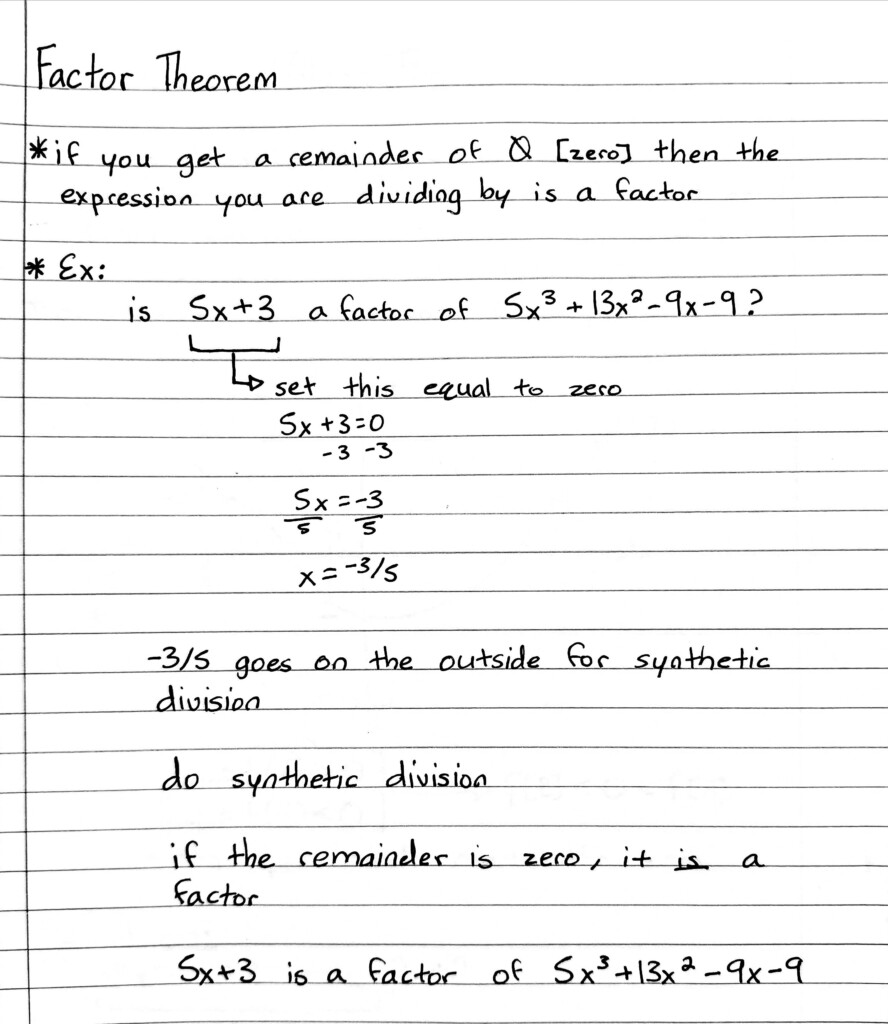 Factor Theorem
*if you get a remainder of 0 [zero] then the
expression you are dividing by is a factor
* Ex:
is 5x+3 a factor of 5x³ + 13x² - 9x - 9?
set this equal to zero
5x + 3 = 0
-3 -3
5x = -3
5 5
x = -3/5
-3/5 goes on the outside for synthetic
division
do synthetic division
if the remainder is zero, it is a
factor
5x+3 is a factor of 5x³ + 13x² - 9x - 9